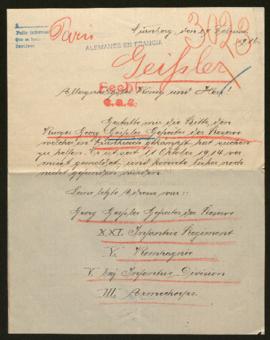 Paris
3023
ALEMANES EN FRANCIA
Nürnberg, den
Geißler
König und Herr!
Gestatte mir die Bitte, den
Georg Geißler Gefreiter der Reserve
welcher in Frankreich gekämpft hat suchen
zu helfen. Er ist seit Oktober 1914 ver-
mißt gemeldet, und konnte bisher noch
nicht gefunden werden.
Seine letzte Adresse war:
Georg Geißler Gefreiter der Reserve
XXI. Infanterie Regiment
V. Kompagnie
V. bay. Infanterie Division
III. Armeekorps.